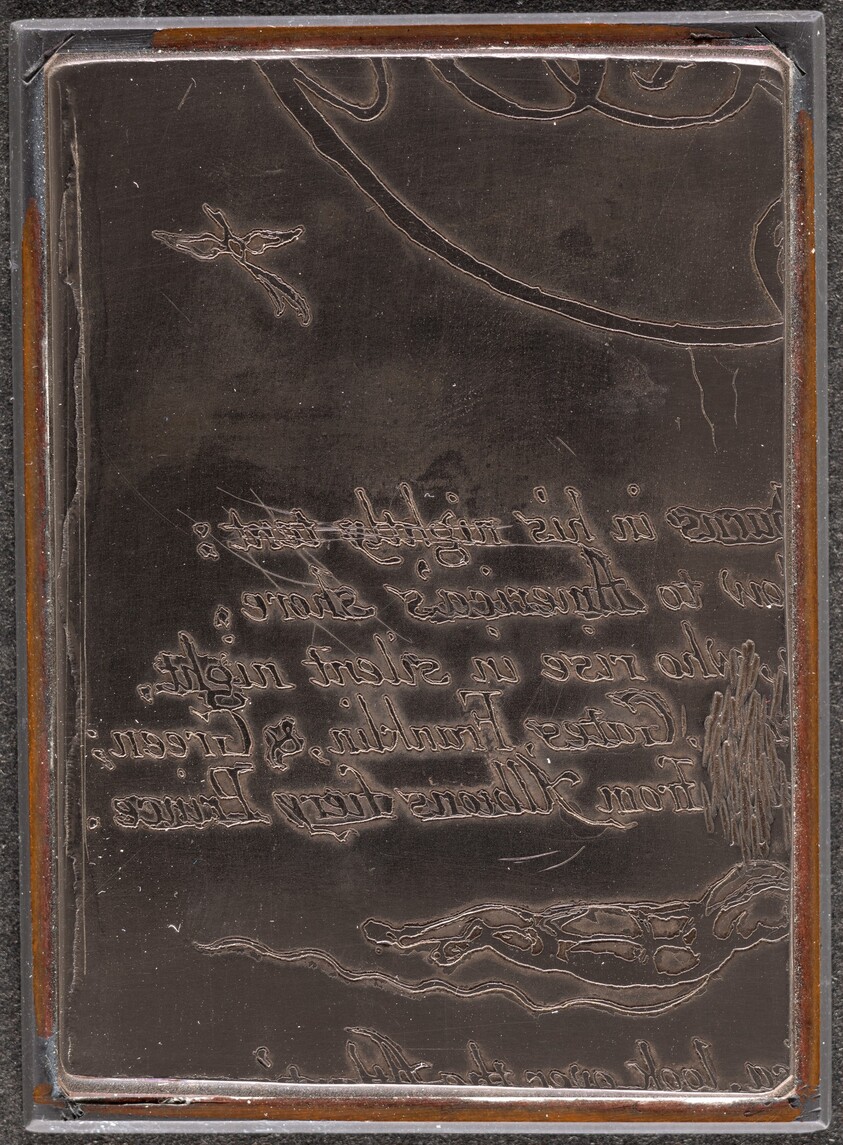 burns in his nightly tent:
low to America's shore:
who rise in silent night,
Gates, Franklin, & Green;
From Albions fiery Prince.
look over the